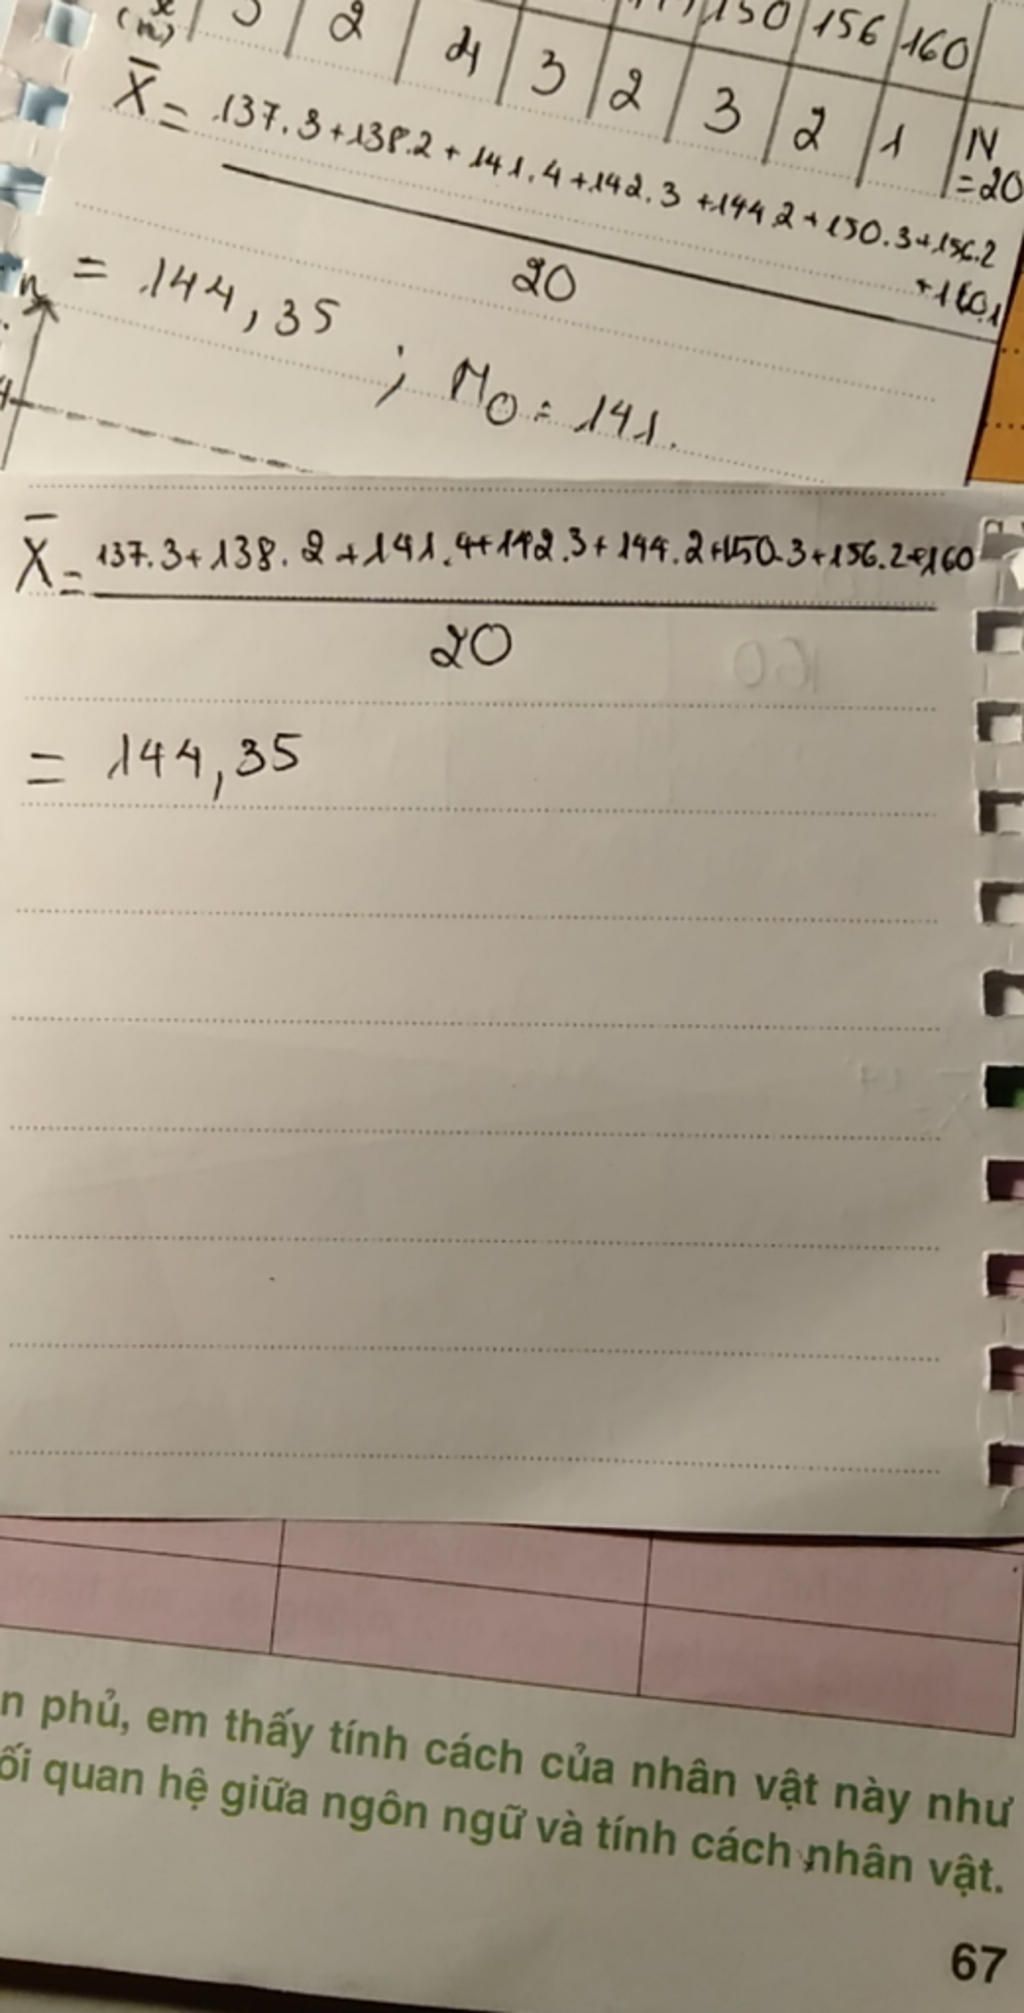 150 156 160
(n) 3 2 4 3 2 3 2 1 N
=20
X̄ = 137.3+138.2+141.4+142.3+144.2+150.3+156.2
+160.1
20
= 144,35 ; M₀ = 141.
n
4
X̄ = 137.3+138.2+141.4+142.3+144.2+150.3+156.2+160
20
= 144,35
n phủ, em thấy tính cách của nhân vật này như
ối quan hệ giữa ngôn ngữ và tính cách nhân vật.
67